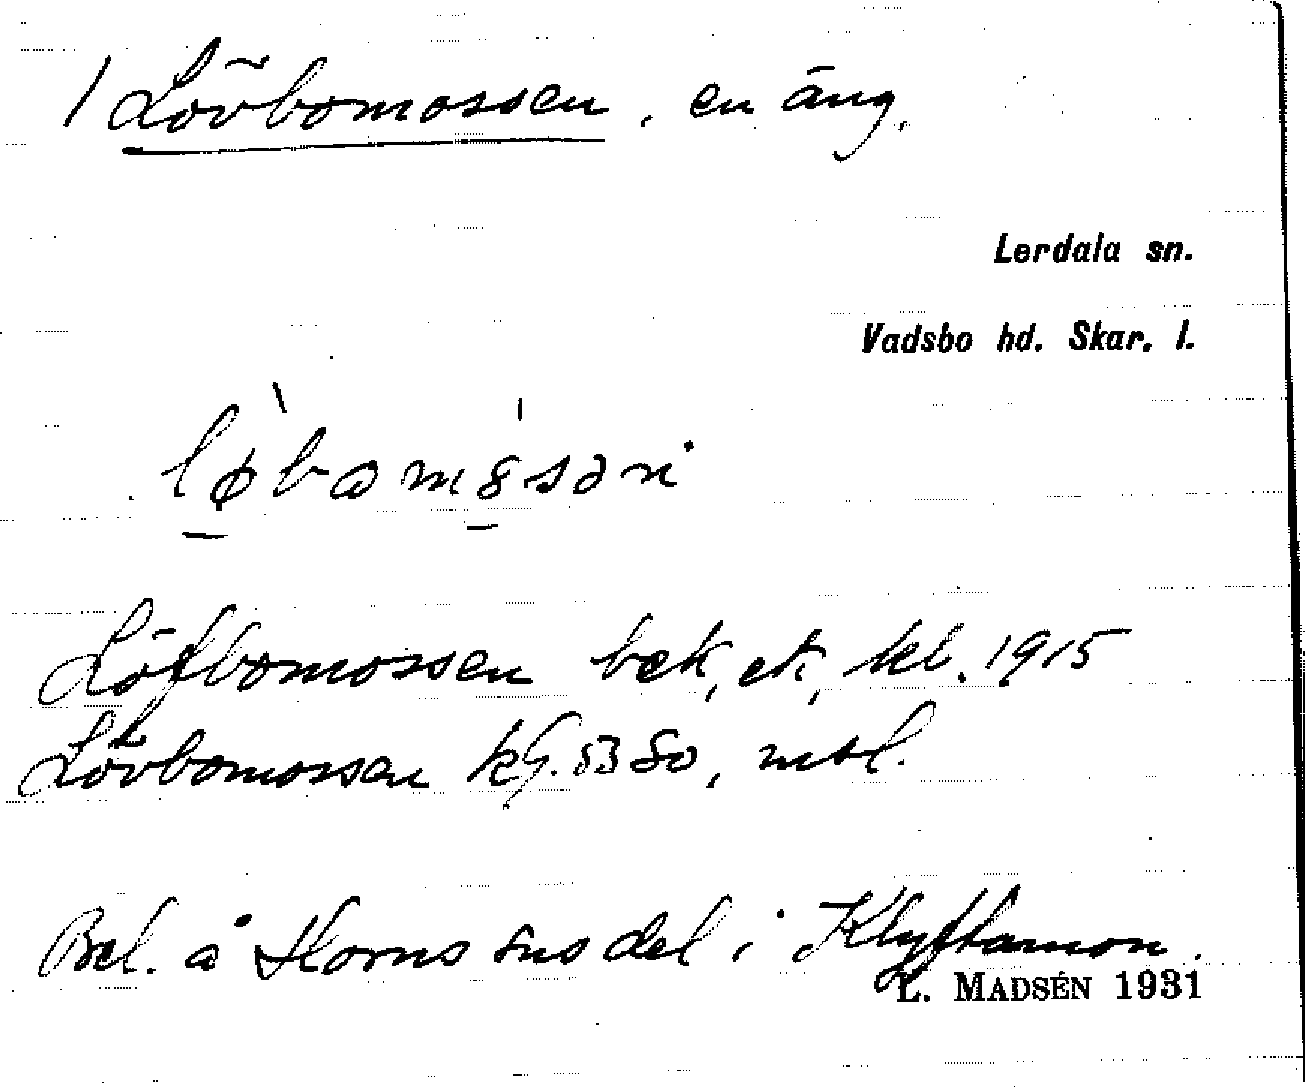 1 Lövbomossen, en äng.
Lerdala sn.
Vadsbo hd. Skar. l.
Löfbomossen bek, ek, kl. 1915
Lövbomossen kg. 5380, mtl.
Bel. å Horns sns del i Klyftamon.
L. MADSÉN 1931